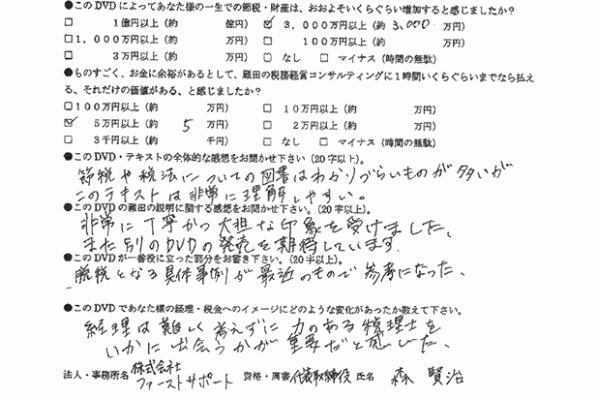 ●このDVDによってあなた様の一生での節税・財産は、おおよそいくらぐらい増加すると感じましたか？
□ 1億円以上（約　　億円） ☑ 3，000万円以上（約3,000万円）
□1，000万円以上（約　　万円） □　100万円以上（約　　万円）
□　3万円以上（約　　万円） □ なし □ マイナス（時間の無駄）
●ものすごく、お金に余裕があるとして、蔵田の税務経営コンサルティングに1時間いくらぐらいまでなら払え
る、それだけの価値がある、と感じましたか？
□100万円以上（約　　万円） □　10万円以上（約　　万円）
☑ 5万円以上（約　5　万円） □　2万円以上（約　　万円）
□ 3千円以上（約　　千円） □ なし □ マイナス（時間の無駄）
●このDVD・テキストの全体的な感想をお聞かせ下さい（20字以上）。
節税や税法についての図書はわかりづらいものが多いが
このテキストは非常に理解しやすい。
●このDVDの蔵田の説明に関する感想をお聞かせ下さい。（20字以上）。
非常に丁寧かつ大胆な印象を受けました、
また別のDVDの発売を期待しています．
●このDVDが一番役に立った部分をお書き下さい。（20字以上）。
脱税となる具体事例が最近のもので参考になった、
●このDVDであなた様の経理・税金へのイメージにどのような変化があったか教えて下さい。
経理は難しく考えずに力のある税理士を
いかに出会うかが重要だと感じた、
法人・事務所名 株式会社 ファーストサポート 資格・肩書 代表取締役 氏名 森 賢治